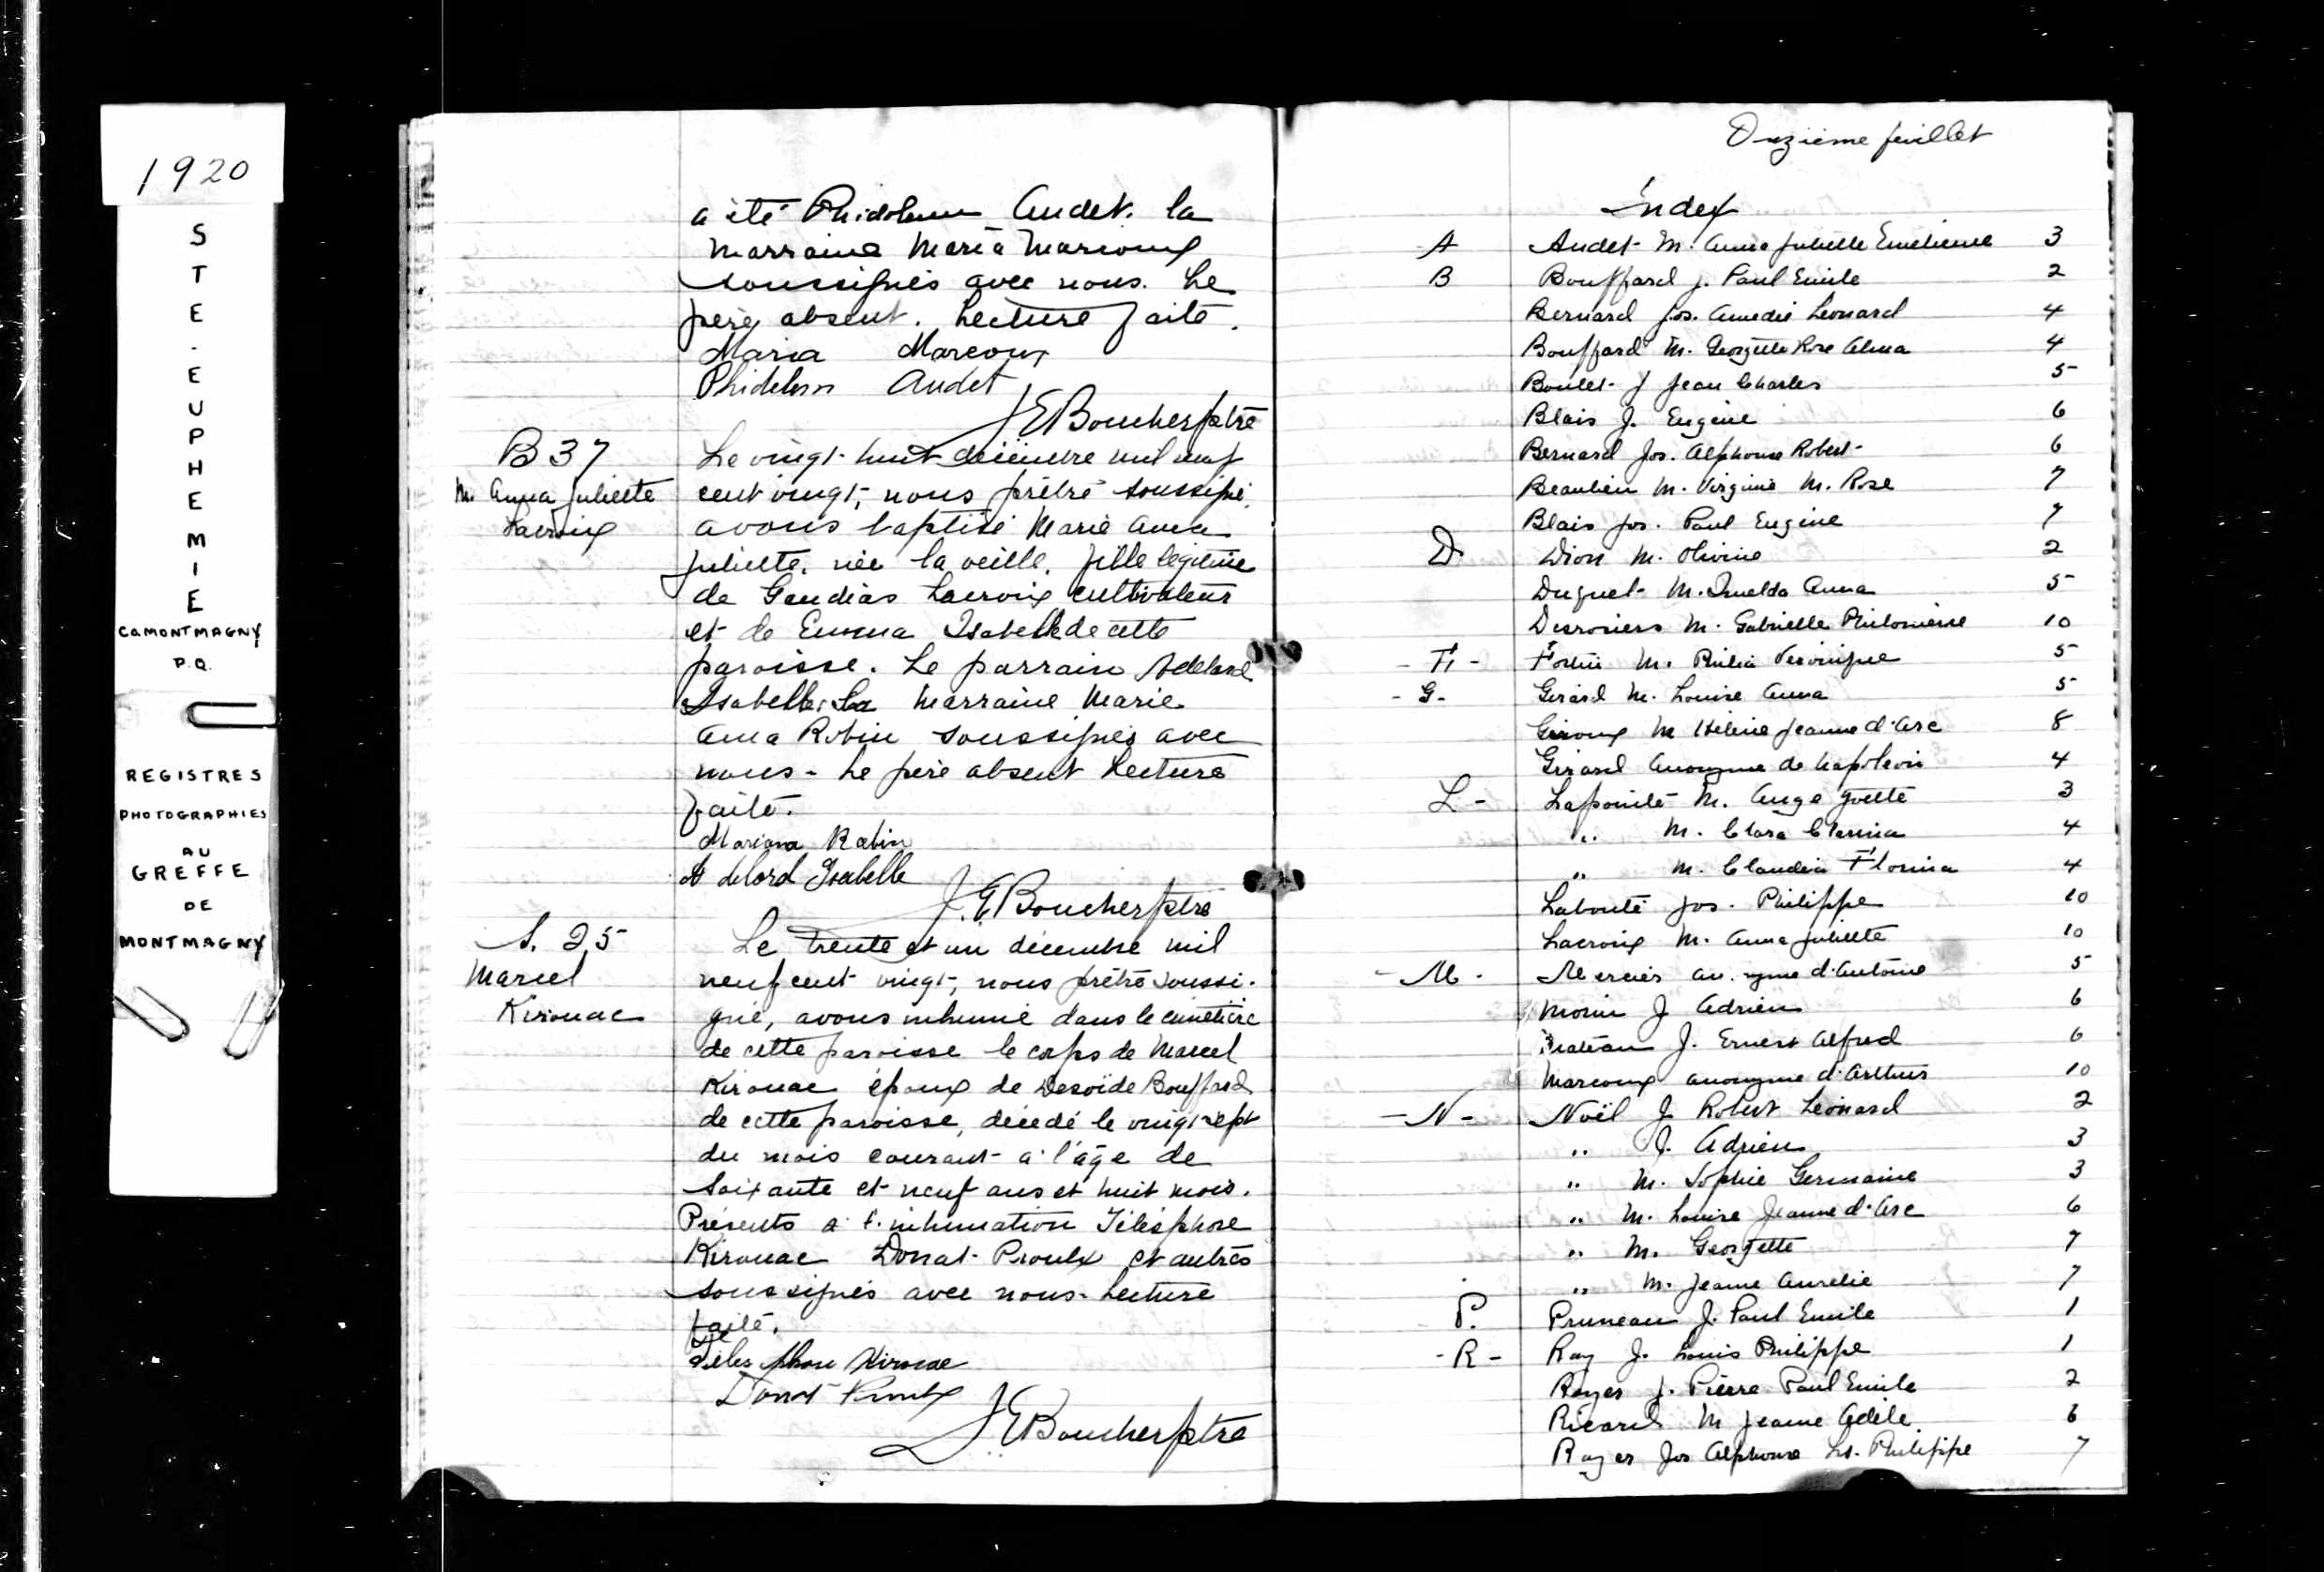 1920
STE-EUPHEMIE
CO MONTMAGNY
P.Q.
REGISTRES
PHOTOGRAPHIES
AU
GREFFE
DE
MONTMAGNY
a été Phidelem Audet. la
marraine Maria Marcoux
soussignés avec nous. Le
père absent. Lecture faite.
Maria Marcoux
Phidelem Audet
J E Boucher ptre
B 37
M. Anna Juliette
Lacroix
Le vingt-huit décembre mil neuf
cent vingt, nous prêtre soussigné
avons baptisé Marie Anna
Juliette, née la veille, fille légitime
de Gaudias Lacroix cultivateur
et de Emma Isabelle de cette
paroisse. Le parrain Adelard
Isabelle, La marraine Marie
Anna Robin soussignés avec
nous - Le père absent Lecture
faite.
Mariana Rabin
Adelord Isabelle
J. E Boucher ptre
S. 25
Marcel
Kirouac
Le trente et un décembre mil
neuf cent vingt, nous prêtre soussi-
gné, avons inhumé dans le cimetière
de cette paroisse le corps de Marcel
Kirouac époux de Desoïde Bouffard
de cette paroisse, décédé le vingt-sept
du mois courant à l'âge de
soixante et neuf ans et huit mois.
Présents à l'inhumation Télesphore
Kirouac Donat Proulx et autres
soussignés avec nous. Lecture
faite.
Télesphore Kirouac
Donat Proulx
J E Boucher ptre
Onzième feuillet
Index
A Audet M. Anna Juliette Emélienne 3
B Bouffard J. Paul Emile 2
Bernard Jos. Amedié Léonard 4
Bouffard M. Georgette Rose Alma 4
Boulet J Jean Charles 5
Blais J. Eugène 6
Bernard Jos. Alphonse Robert 6
Beaulieu M. Virginie M. Rose 7
Blais Jos. Paul Eugène 7
D Dion M. Olivine 2
Duquet M. Imelda Anna 5
Desrosiers M. Gabrielle Philomène 10
- F - Fortin M. Véronique 5
- G. Girard M. Louise Anna 5
Giroux M Hélène Jeanne d'Arc 8
Girard Anonyme de Napoléon 4
L - Lapointe M. Ange Yvette 3
" M. Clara Clarina 4
" M. Claudia Florina 4
Labonté Jos. Philippe 10
Lacroix M. Anna Juliette 10
- M - Mercier anonyme d'Antoine 5
Morin J Adrien 6
J. Ernest Alfred 6
Marcoux anonyme d'Arthur 10
- N - Noël J Robert Léonard 2
" J. Adrien 3
" M. Sophie Germaine 3
" M. Louise Jeanne d'Arc 6
" M. Georgette 7
" M. Jeanne Aurelie 7
P. Pruneau J. Paul Emile 1
- R - Roy J. Louis Philippe 1
Royer J. Pierre Paul Emile 2
Ricard M Jeanne Adèle 6
Royer Jos Alphonse Ls. Philippe 7